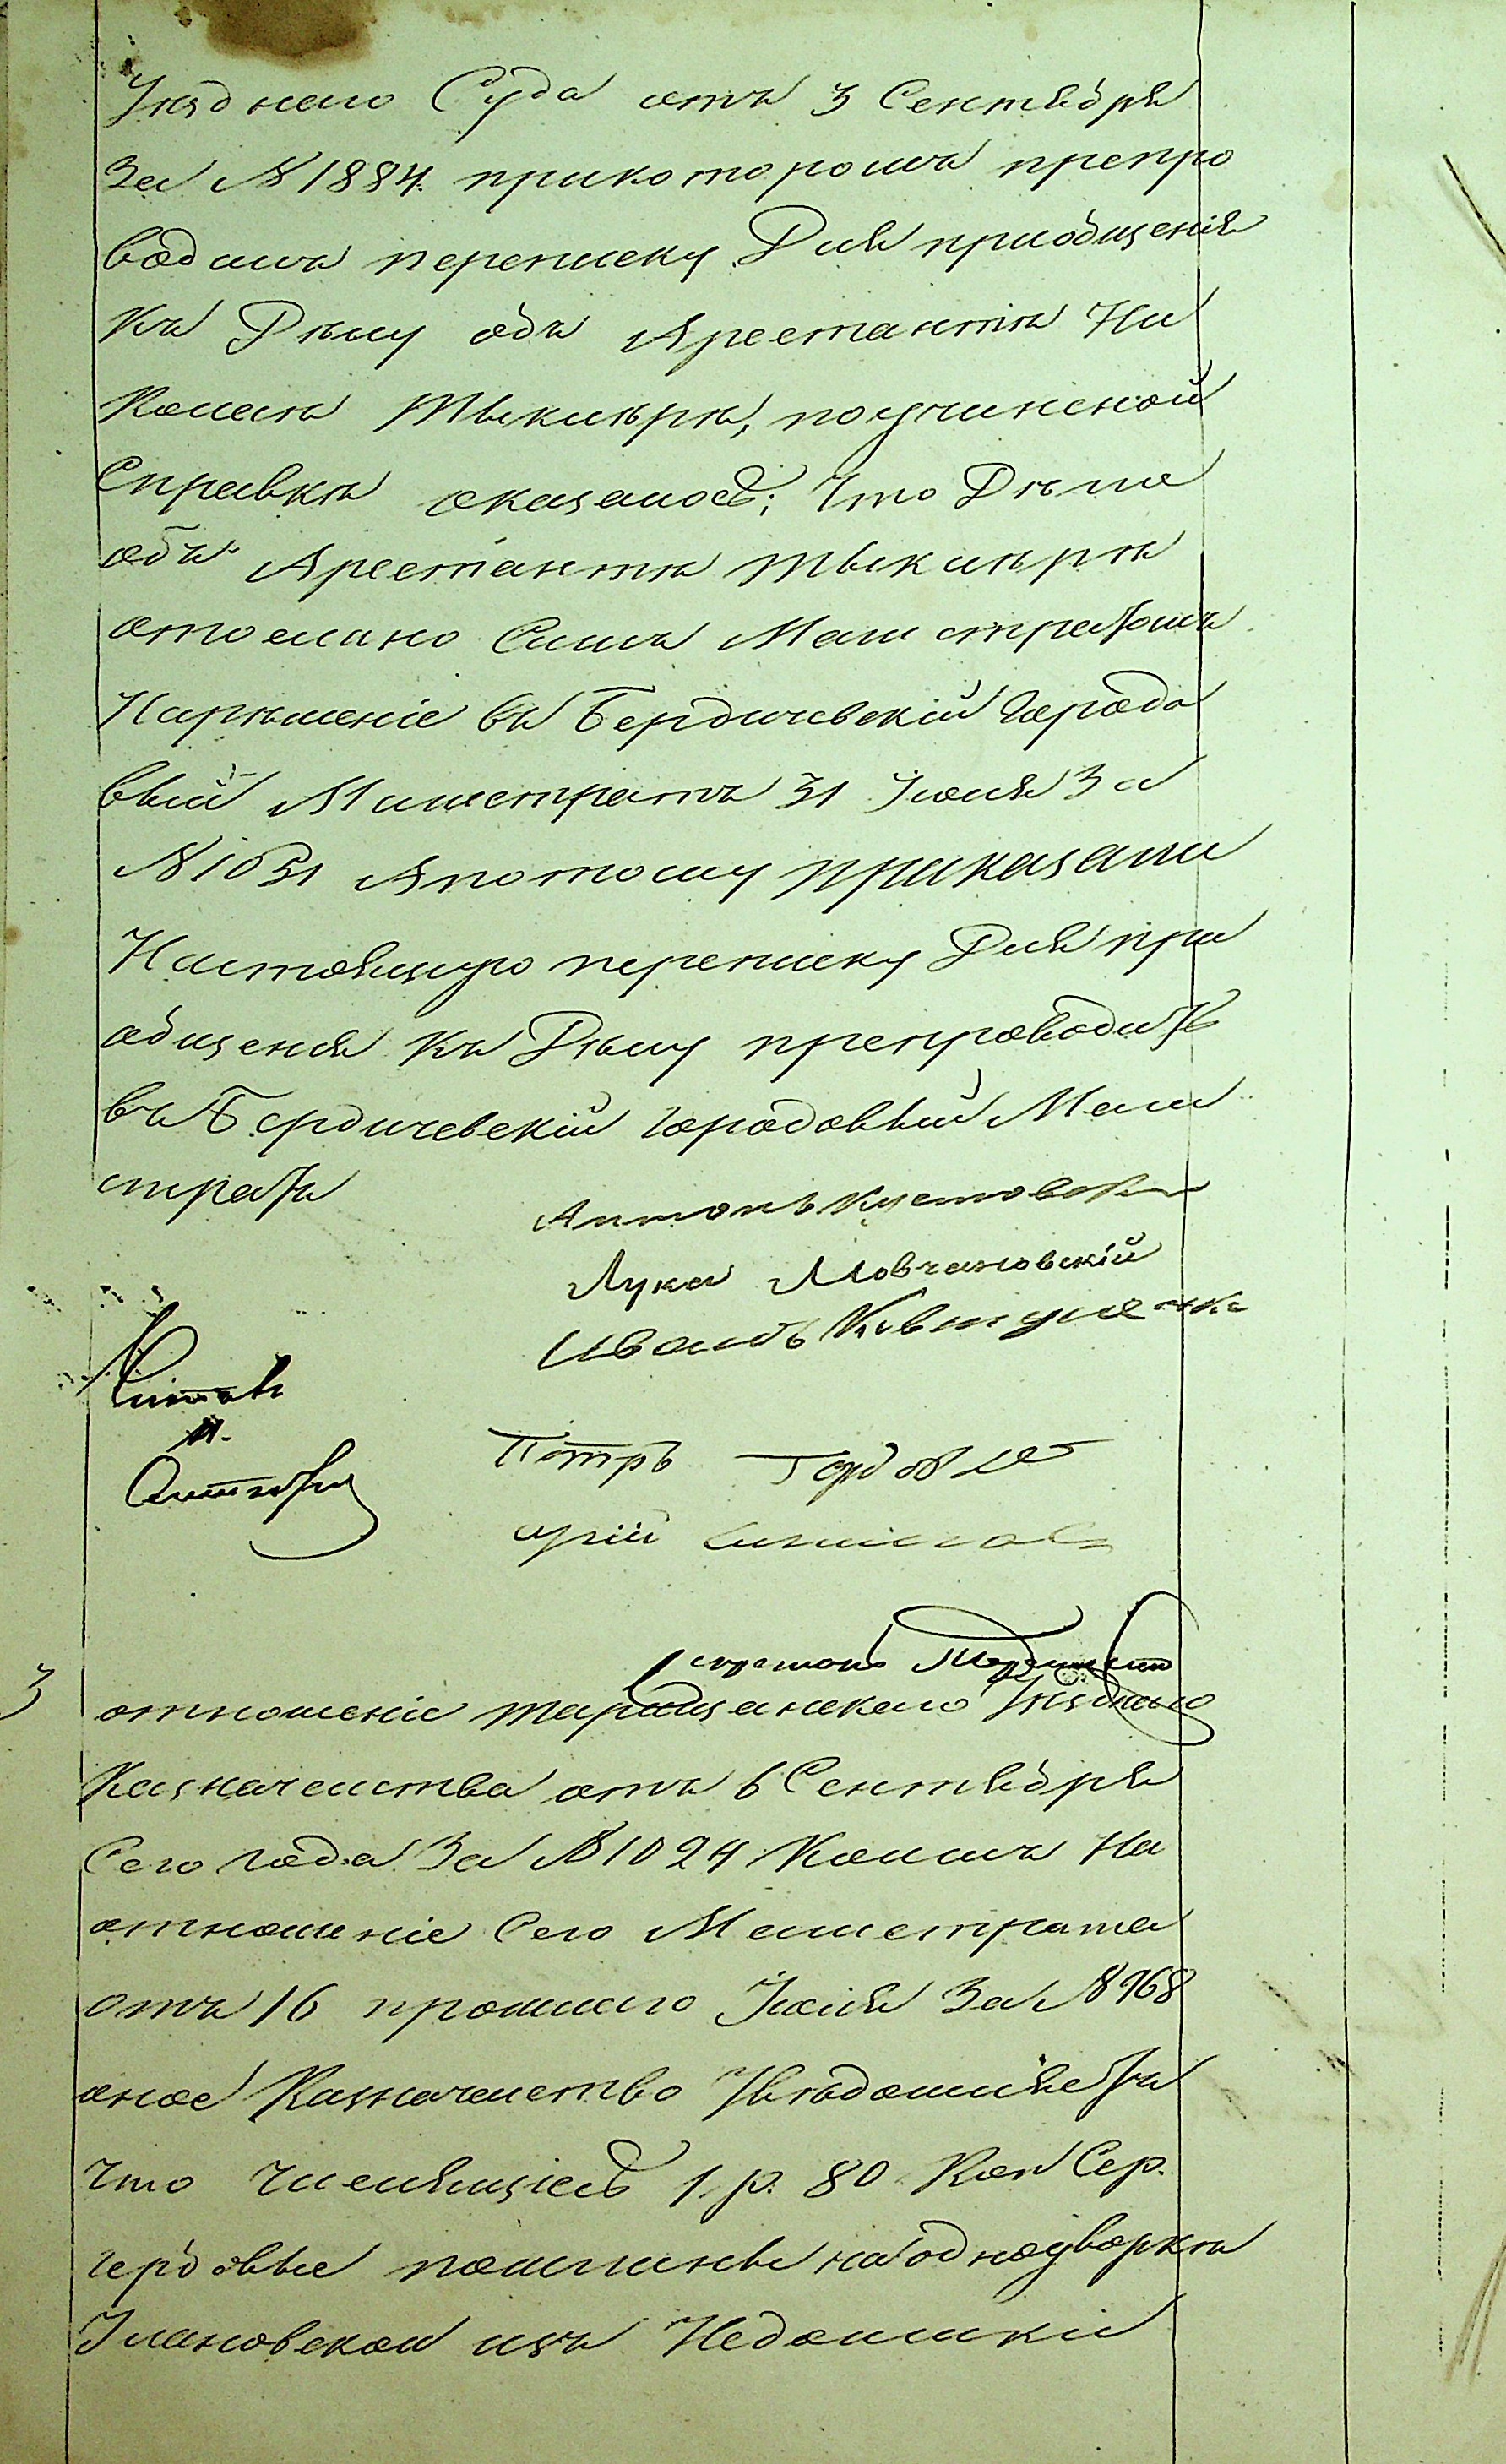 Уѣзднаго Суда отъ 3 Сентября
За № 1884. прикоторомъ препро
водилъ переписку Для приобщенія
Къ Дѣлу объ Арестантѣ Ни
Колаѣ Тыклярѣ, поучиненной
Справкѣ оказалось; Что Дѣло
объ Арестантѣ Тыклярѣ
отослано Симъ Магистратомъ
Нарѣшеніе въ Бердичевскій Городо
вый Магистратъ 31 Іюля За
№ 1031 Апотому приказали
Настоящую переписку Для при
общенія Къ Дѣлу препроводить
въ Бердичевскій городовый Маги
стратъ
Антонъ
Лука Мовчановскій
Иванъ
Читалъ
Петръ
отношеніе Таращанскаго Уѣзднаго
3
Казначейства отъ 6 Сентября
Сего года За № 1024 Коимъ На
отношеніе Сего Магистрата
отъ 16 прошлаго Іюля За № 968
оное Казначейство Увѣдомляетъ
Что Числящіесь 1 р. 80 Коп Сер.
гербовые пошлины на однодворкѣ
Улановской изъ Недоимки